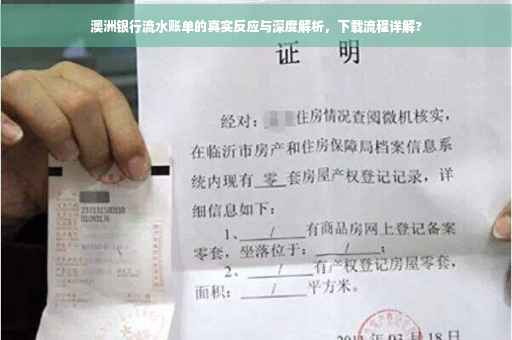 澳洲银行流水账单的真实反应与深度解析，下载流程详解?
证 明
经对：住房情况查阅微机核实，
在临沂市房产和住房保障局档案信息系
统内现有 零 套房屋产权登记记录，详
细信息如下：
1、 / 有商品房网上登记备案
零套，坐落位于： / ；
2、 / 有产权登记房屋零套，
面积： / 平方米。
03 月 18 日